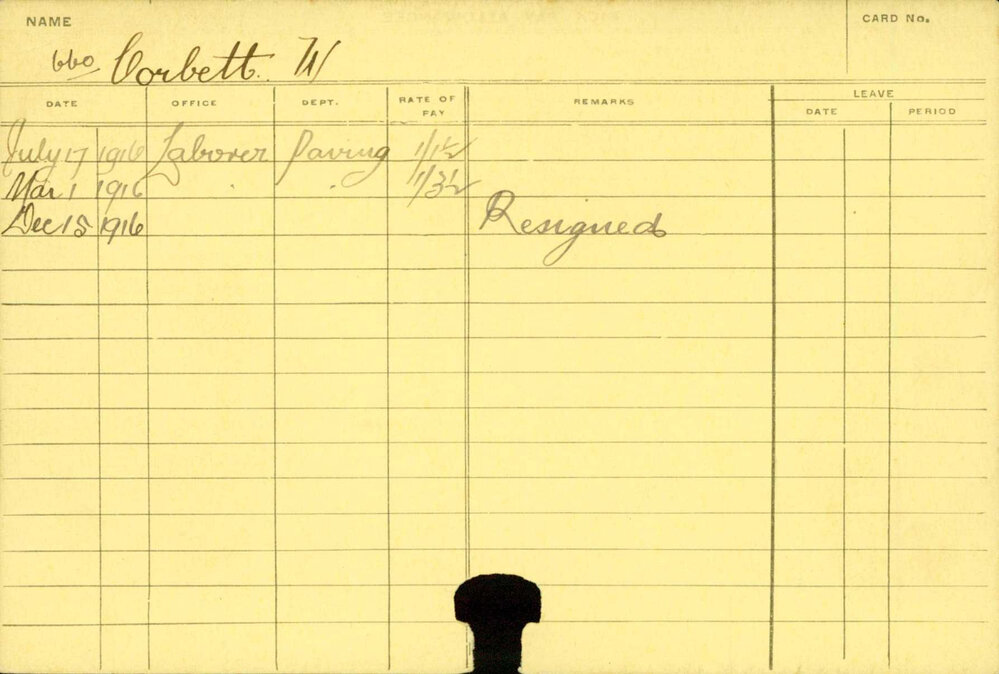 NAME
CARD No.
660 Corbett. W
DATE OFFICE DEPT. RATE OF PAY REMARKS LEAVE
DATE PERIOD
July 17 1916 Laborer Paving 1/1½
Mar 1 1916 " " 1/3½
Dec 15 1916 Resigned